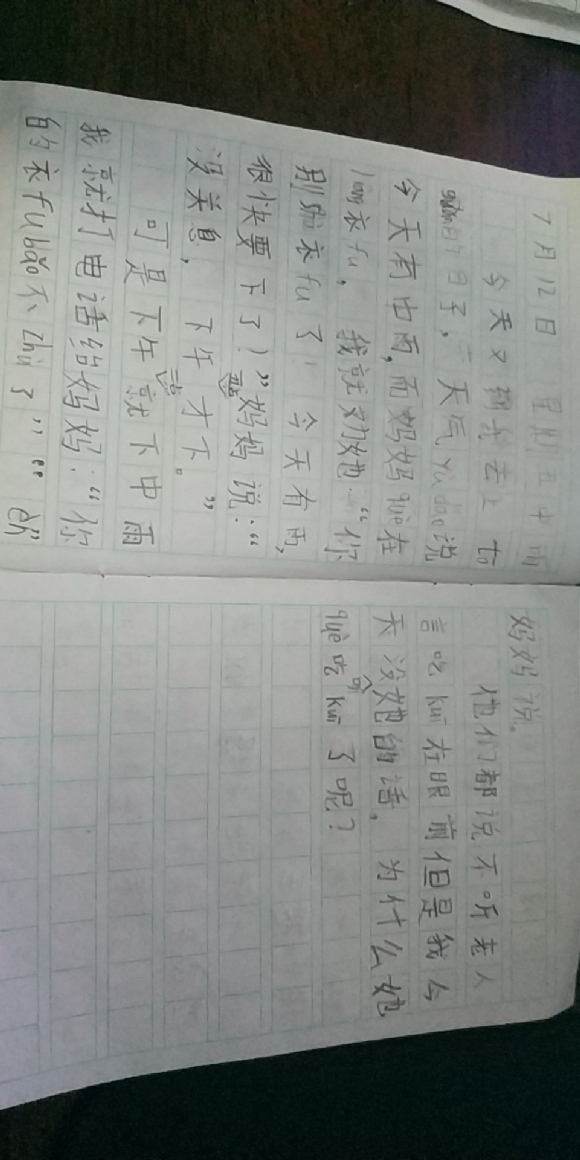 7月12日 星期五 中雨
今天又到我去上
的日子,天气yù dào说
今天有中雨,而妈妈què在
liàng衣fu,我就劝她:“你
别liàng衣fu了!今天有雨,
很快要下了!”妈妈说:“
没关息,下午才下。”
可是下午就下中雨
我就打电话给妈妈:“你
的衣fubǎo不zhù了”“
妈妈说。
他们都说不听老人
言吃kuī在眼前但是我今
天没听她的话,为什么她
què吃kuī了呢?